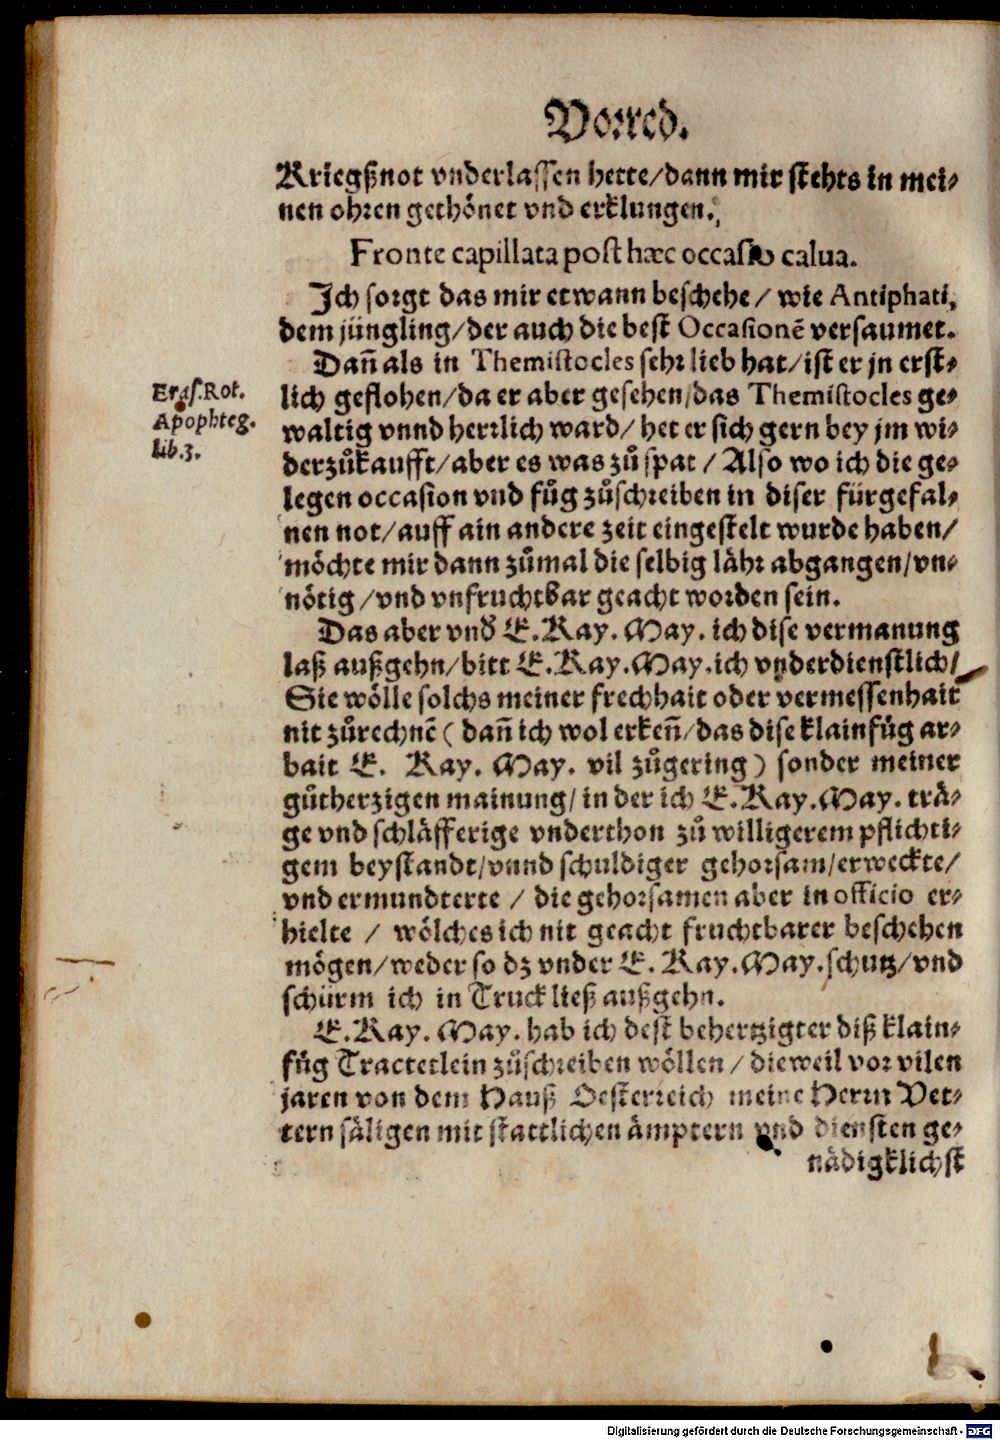 Vorred.
Kriegßnot vnderlassen hette/dann mir stehts in mei⸗
nen ohren gethönet vnd erklungen.
Fronte capillata post hæc occasio calua.
Ich sorgt das mir etwann beschehe / wie Antiphati,
dem jüngling/der auch die best Occasionē versaumet.
Dañ als in Themistocles sehr lieb hat/ist er jn erst⸗
lich geflohen/da er aber gesehen/das Themistocles ge⸗
Eras.Rot.
Apophteg.
lib.3.
waltig vnnd herrlich ward/het er sich gern bey jm wi⸗
derzůkaufft/aber es was zů spat / Also wo ich die ge⸗
legen occasion vnd fůg zůschreiben in diser fürgefal⸗
nen not/auff ain andere zeit eingestelt wurde haben/
möchte mir dann zůmal die selbig lähr abgangen/vn⸗
nötig /vnd vnfruchtbar geacht worden sein.
Das aber vnd E.Kay.May.ich dise vermanung
laß außgehn/bitt E.Kay.May.ich vnderdienstlich/
Sie wölle solchs meiner frechhait oder vermessenhait
nit zůrechnē ( dañ ich wol erkeñ/das dise klainfůg ar⸗
bait E. Kay. May. vil zůgering) sonder meiner
gůtherzigen mainung/in der ich E.Kay.May. trä⸗
ge vnd schläfferige vnderthon zů willigerem pflichti⸗
gem beystandt/vnnd schuldiger gehorsam/erweckte/
vnd ermundterte / die gehorsamen aber in officio er⸗
hielte / wölches ich nit geacht fruchtbarer beschehen
mögen/weder so dz vnder E. Kay.May.schutz/vnd
schürm ich in Truck ließ außgehn.
E.Kay. May. hab ich dest behertzigter diß klain⸗
fůg Tractetlein zůschreiben wöllen / dieweil vor vilen
jaren von dem Hauß Oesterreich meine Herrn Vet⸗
tern säligen mit stattlichen ämptern vnd diensten ge⸗
nädigklichst
Digitalisierung gefördert durch die Deutsche Forschungsgemeinschaft - DFG